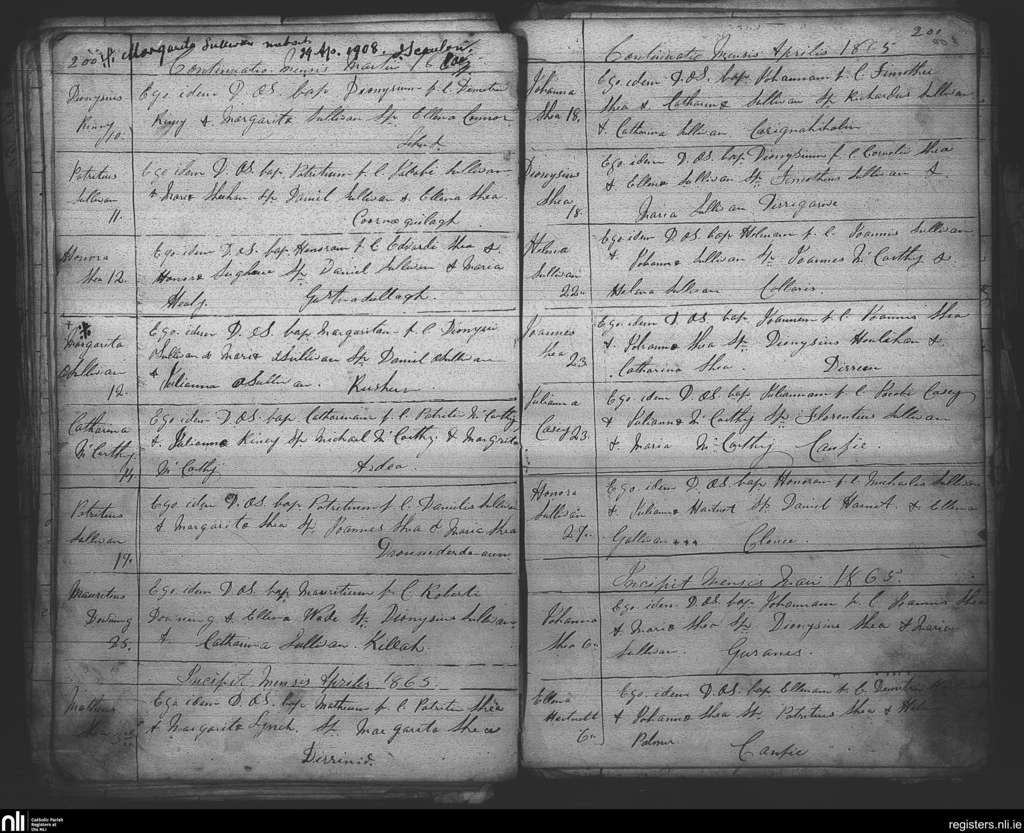 200
Margarita Sullivan nupsit
29 Ap. 1908.
Continuatio mensis Martii
Dionysius
Kinny
10.
Ego idem D. OS. bap Dionysium f. l. Demetri
Kinny & Margarita Sullivan Sp. Ellena Connor
Patritius
Sullivan
11.
Ego idem D. OS. bap Patritium f. l. Jacobi Sullivan
& Maria Sheehan Sp. Daniel Sullivan & Ellena Shea
Honora
Shea 12.
Ego idem D. OS. bap Honoram f. l. Edvardi Shea &
Honora Sp. Daniel Sullivan & Maria
Healy.
Margarita
OSullivan
12.
Ego idem D. OS. bap Margaritam f. l. Dionysii
OSullivan & Maria OSullivan Sp. Daniel OSullivan
& Julianna OSullivan.
Catharina
McCarthy
Ego idem D. OS. bap Catharinam f. l. Patritii McCarthy
& Julianna Sp. Michael McCarthy & Margarita
McCarthy Ardea
Patritius
Sullivan
19.
Ego idem D. OS. bap Patritium f. l. Danielis Sullivan
& Margarita Shea Sp. Joannes Shea & Maria Shea
Mauritius
Downing
25.
Ego idem D. OS. bap Mauritium f. l. Roberti
Downing & Ellena Wade Sp. Dionysius Sullivan
& Catharina Sullivan. Killah.
Incipit Mensis Aprilis 1865.
Matheus
Shea
Ego idem D. OS. bap Matheum f. l. Patritii Shea
& Margarita Lynch. Sp. Margarita Shea
200
Continuatio Mensis Aprilis 1865
Johanna
Shea 18.
Ego idem D. OS. bap. Johannam f. l. Timothei
Shea & Catharina Sullivan Sp. Richardus Sullivan
& Catharina Sullivan
Dionysius
Shea
18.
Ego idem D. OS. bap Dionysium f. l. Cornelii Shea
& Ellena Sullivan Sp. Timotheus Sullivan &
Maria Sullivan
Helena
Sullivan
22.
Ego idem D. OS. bap Helenam f. l. Joannis Sullivan
& Johanna Sullivan Sp. Joannes McCarthy &
Helena Sullivan Colloris.
Joannes
Shea
23.
Ego idem D. OS. bap. Joannem f. l. Joannis Shea
& Johanna Shea Sp. Dionysius Houlahan &
Catharina Shea. Derreen
Julianna
Casey 23.
Ego idem D. OS. bap Juliannam f. l. Jacobi Casey
& Julianna McCarthy Sp. Florentius Sullivan
& Maria McCarthy Canfie
Honora
Sullivan
27.
Ego idem D. OS. bap Honoram f. l. Michaelis Sullivan
& Julianna Hartnet Sp. Daniel & Ellena
Sullivan Clonee.
Incipit Mensis Maii 1865.
Johanna
Shea 6.
Ego idem D. OS. bap. Johannam f. l. Joannis Shea
& Maria Shea Sp. Dionysius Shea & Maria
Sullivan.
Ellena
Hartnett
6.
Ego idem D. OS. bap Ellenam f. l.
& Johanna Shea Sp. Patritius Shea &
Palmer Canfie
nli
Catholic Parish
Registers at
the NLI
registers.nli.ie